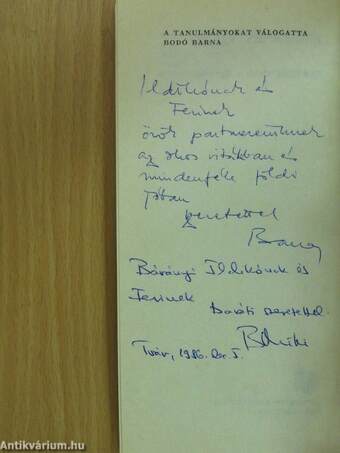 A TANULMÁNYOKAT VÁLOGATTA
BODÓ BARNA
Ildikónak és
Ferinek
örök partnereimnek
az okos vitákban és
mindenféle földi
jóban
szeretettel
Barna
Bárányi Ildikónak és
Ferinek
baráti szeretettel
Tvár, 1986.
Antikvárium.hu